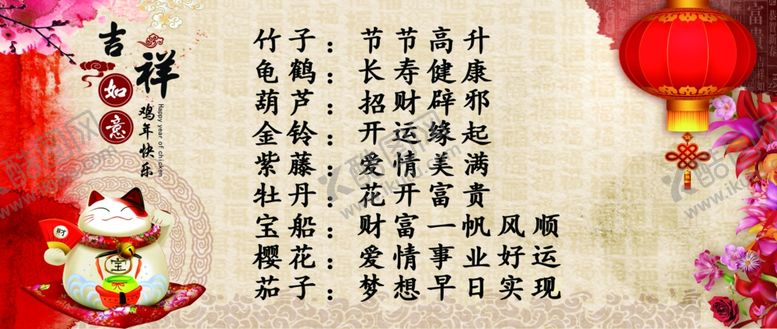 吉祥
如意
鸡年快乐
Happy year of chicken
竹子：节节高升
龟鹤：长寿健康
葫芦：招财辟邪
金铃：开运缘起
紫藤：爱情美满
牡丹：花开富贵
宝船：财富一帆风顺
樱花：爱情事业好运
茄子：梦想早日实现
财
宝
富贵